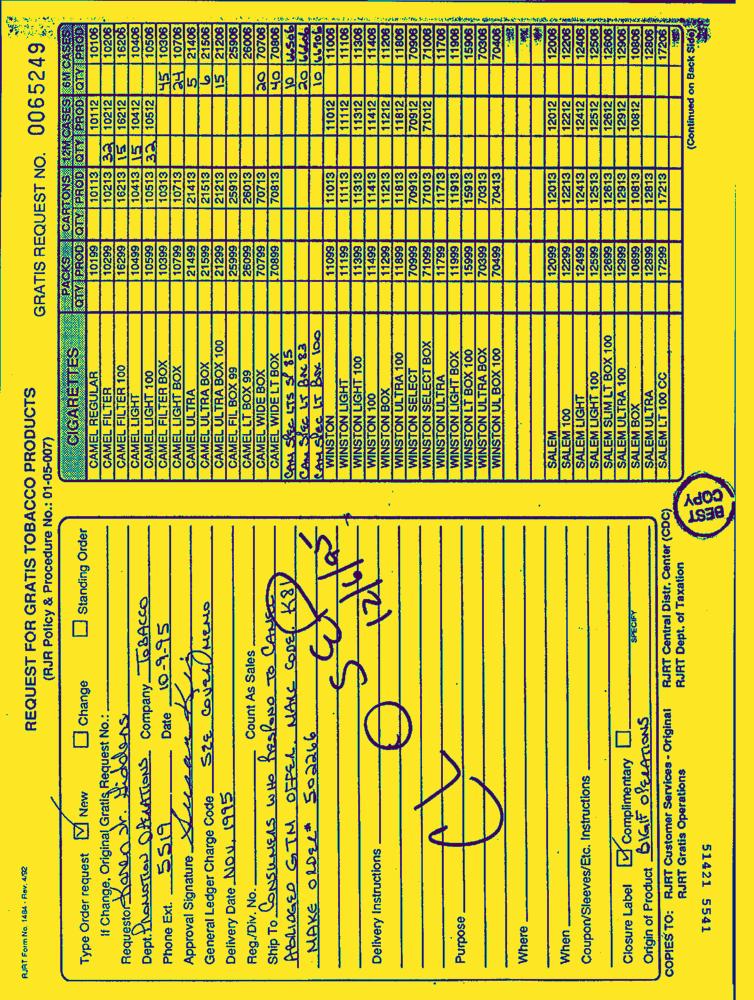 RJRT Form No. 1484 - Rev. 4/92
REQUEST FOR GRATIS TOBACCO PRODUCTS
(RJR Policy & Procedure No.: 01-05-007)
GRATIS REQUEST NO. 0065249
Type Order request ☑ New ☐ Change ☐ Standing Order
If Change, Original Gratis Request No.:
Requestor
Dept. PROMOTION OPERATIONS Company TOBACCO
Phone Ext. 5519 Date 10-9-95
Approval Signature
General Ledger Charge Code SEE COVER MEMO
Delivery Date NOV. 1995
Reg./Div. No. Count As Sales
Ship To CONSUMERS WHO RESPOND TO CAMEL
GTM OFFER, MARC CODE K81
MAKE ORDER# 502266
SW
12/6/95
Delivery Instructions
Purpose
Where
When
Coupon/Sleeves/Etc. Instructions
Closure Label ☑ Complimentary ☐
SPECIFY
Origin of Product BIGIF OPERATIONS
COPIES TO: RJRT Customer Services - Original RJRT Central Distr. Center (CDC)
RJRT Gratis Operations RJRT Dept. of Taxation
51421 5541
BEST COPY
CIGARETTES PACKS CARTONS 12M CASES 6M CASES
QTY PROD QTY PROD QTY PROD QTY PROD
CAMEL REGULAR 10199 10113 10112 10106
CAMEL FILTER 10299 10213 32 10212 10206
CAMEL FILTER 100 16299 16213 15 16212 16206
CAMEL LIGHT 10499 10413 15 10412 10406
CAMEL LIGHT 100 10599 10513 32 10512 10506
CAMEL FILTER BOX 10399 10313 45 10306
CAMEL LIGHT BOX 10799 10713 24 10706
CAMEL ULTRA 21499 21413 5 21406
CAMEL ULTRA BOX 21599 21513 6 21506
CAMEL ULTRA BOX 100 21299 21213 15 21206
CAMEL FIL BOX 99 25999 25913 25906
CAMEL LT BOX 99 26099 26013 26006
CAMEL WIDE BOX 70799 70713 20 70706
CAMEL WIDE LT BOX 70899 70813 40 70806
CAM SPEC LTS SP 85 10
CAM SPEC LT BOX 83 20
CAM SPEC LT BOX 100 10
WINSTON 11099 11013 11012 11006
WINSTON LIGHT 11199 11113 11112 11106
WINSTON LIGHT 100 11399 11313 11312 11306
WINSTON 100 11499 11413 11412 11406
WINSTON BOX 11299 11213 11212 11206
WINSTON ULTRA 100 11899 11813 11812 11806
WINSTON SELECT 70999 70913 70912 70906
WINSTON SELECT BOX 71099 71013 71012 71006
WINSTON ULTRA 11799 11713 11706
WINSTON LIGHT BOX 11999 11913 11906
WINSTON LT BOX 100 15999 15913 15906
WINSTON ULTRA BOX 70399 70313 70306
WINSTON UL BOX 100 70499 70413 70406
SALEM 12099 12013 12012 12006
SALEM 100 12299 12213 12212 12206
SALEM LIGHT 12499 12413 12412 12406
SALEM LIGHT 100 12599 12513 12512 12506
SALEM SLIM LT BOX 100 12699 12613 12612 12606
SALEM ULTRA 100 12999 12913 12912 12906
SALEM BOX 10899 10813 10812 10806
SALEM ULTRA 12899 12813 12806
SALEM LT 100 CC 17299 17213 17206
(Continued on Back Side)